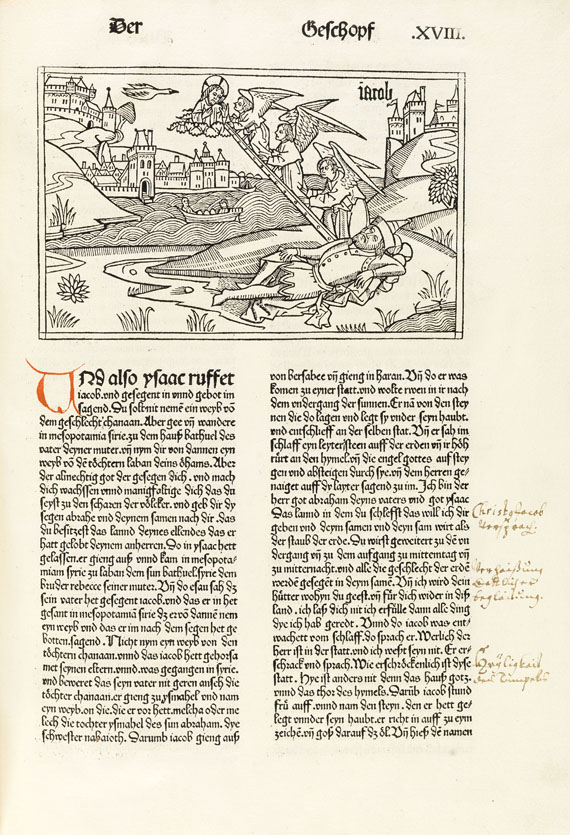 Der Geschopf .XVIII.
iacob
UNd also ysaac ruffet
iacob. vnd gesegent in vnnd gebot im
sagend. Du solt nit nemē ein weyb vō
dem geschlecht chanaan. Aber gee vñ wandere
in mesopotamia sirie. zu dem hauß bathuel des
vater deyner muter. vñ nym dir von dannen eyn
weyb vō dē töchtern laban deins öhams. Aber
der almechtig got der gesegen dich. vnd mach
dich wachssen vnnd manigfeltige dich das du
seyst zu den scharen der völcker. vnd geb dir dy
segen abrahe vnd deynem samen nach dir. das
du besitzest das lannd deynes ellendes das er
hatt gelobt deynem anherren. So in ysaac hett
gelassen. er gieng auß vnnd kam in mesopota⸗
miam syrie zu laban dem sun bathuel syrie dem
bruder rebecce seiner muter. Vñ do esau sah dz
sein vater het gesegent iacob. vnd das er in het
gesant in mesopotamiā sirie dz er vō dannē nem
eyn weyb vnd das er im nach dem segen het ge
botten. sagend. Nicht nym eyn weyb von den
töchtern chanaan. vnnd das iacob hett gehorsa
met seynen eltern. vnnd. was gegangen in syrie.
vnd beweret das seyn vater nit geren ansch die
töchter chanaan. er gieng zu ysmahel vnd nam
eyn weyb. on die. die er vor hett. melcha oder me
lech die tochter ysmahel des sun abraham. dye
schwester nabaioth. Darumb iacob gieng auß
von bersabee vñ gieng in haran. Vñ do er was
komen zu eyner statt. vnd wolte rwen in ir nach
dem vndergang der sunnen. Er nā von den stey
nen die do lagen vnd legt sy vnder seyn haubt.
vnd entschlieff an der selben stat. Vñ er sah im
schlaff eyn leyter steen auff der erden vñ ir höh
rürt an den hymel. vñ die engel gottes auf stey
gen vnd absteigen durch sye. vñ dem herren ge⸗
naiget auff dy layter sagend zu im. Ich bin der
herr got abraham deyns vaters vnd got ysaac
Das lannd in dem du schleffst das will ich dir
geben vnd deym samen vnd deyn sam wirt als
der staub der erde. Du wirst geweitert zu dē vn
dergang vñ zu dem aufgang zu mittemtag vñ
zu mitternacht. vnd alle die geschlecht der erdē
werdē gesegēt in deym samē. Vñ ich wird dein
hütter wohyn du geest. vñ für dich wider in diß
land. ich laß dich nit ich erfülle dann alle ding
dye ich hab geredt. Vnnd do iacob was ent⸗
wachett vom schlaff. do sprach er. Werlich der
herr ist in der statt. vnd ich weyst seyn nit. Er er⸗
schrack vnd sprach. Wie erschröckenlich ist dyse
statt. Hye ist anders nit denn das hauß gotz.
vnnd das thor des hymels. Darūb iacob stund
frü auff. vnnd nam den steyn. den er hett ge⸗
legt vnnder seyn haubt. er richt in auff zu eym
zeichē. vñ goß darauf dz öl. Vñ hieß dē namen